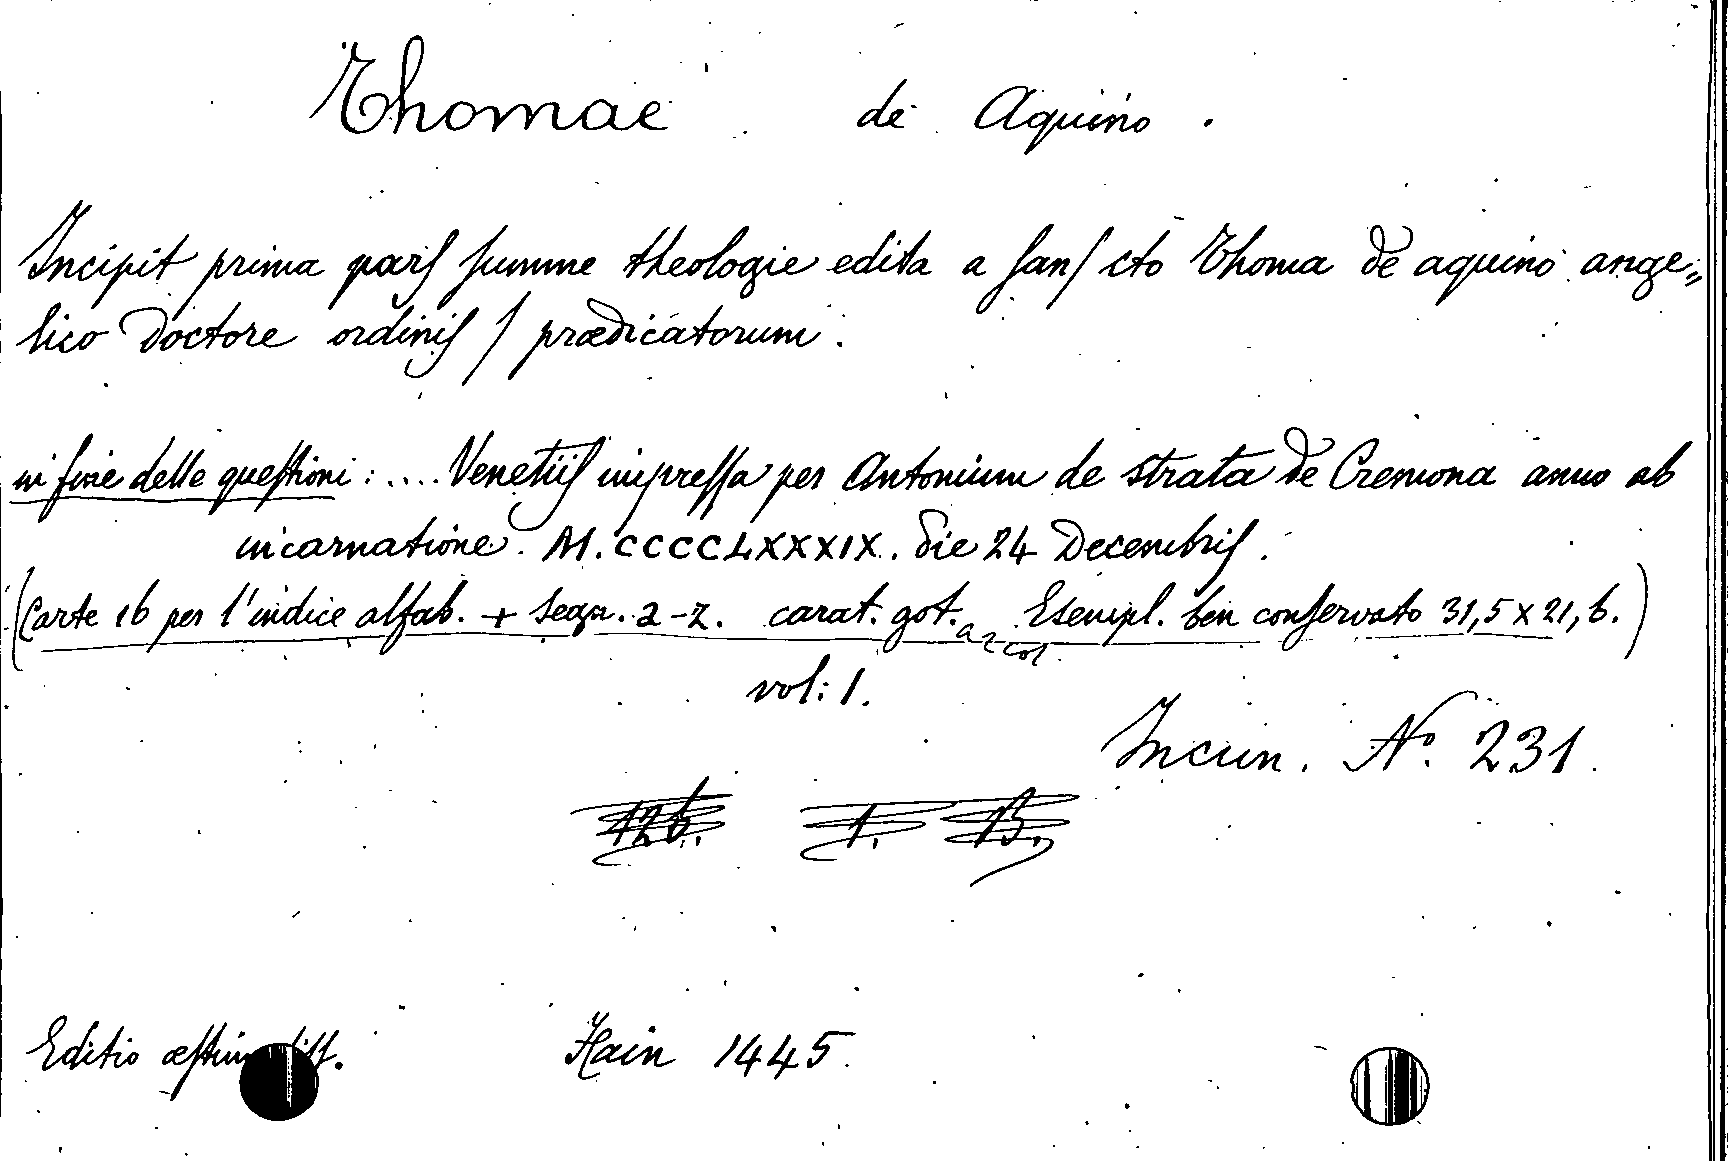 Thomae de Aquino.
Incipit prima pars summe theologie edita a san/cto Thoma de aquino ange„
lico Doctore ordinis / prædicatorum.
in fine delle questioni: .... Venetiis impressa per Antonium de strata de Cremona anno ab
incarnatione. M.CCCCLXXXIX. die 24 Decembris.
(Carte 16 per l'indice alfab. + segn. a-z. carat. got. a 2 col. Esempl. ben conservato 31,5 x 21,6.)
vol: 1.
Incun. Nº 231.
126. 1. 13.
Editio Hain 1445.